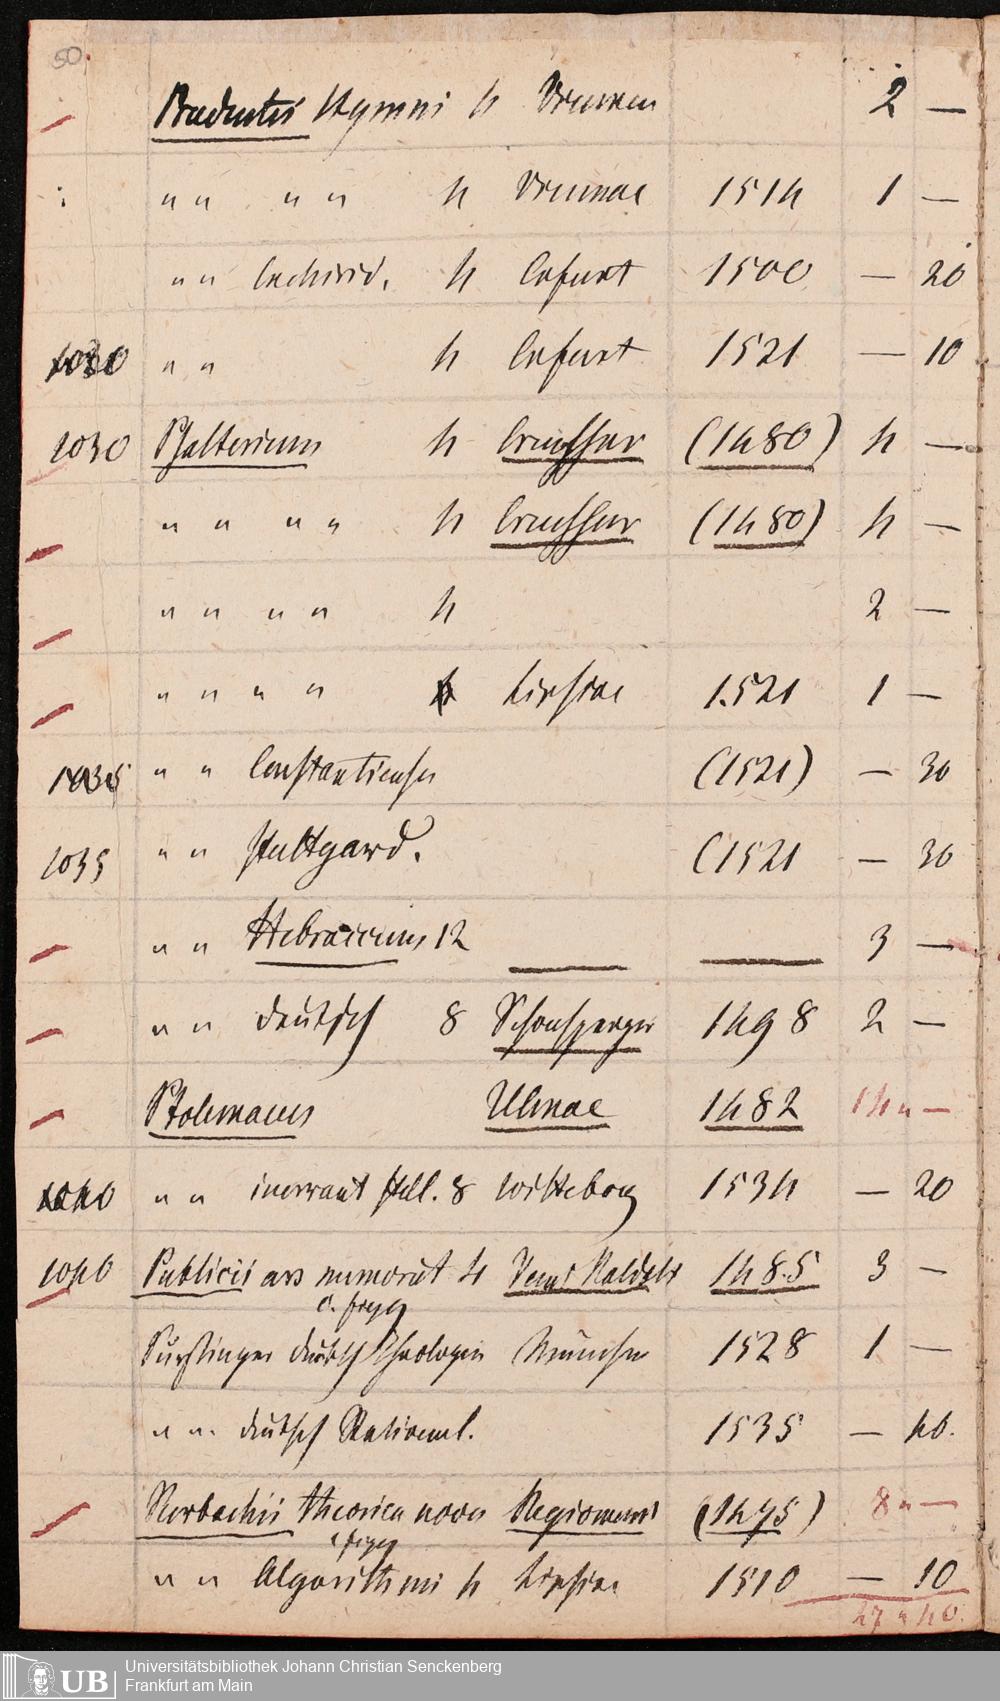 50.
Prudentii Hymni 4 Viennen 2 —
" " " " 4 Viennae 1514 1 —
" " Enchirid. 4 Erfurt 1500 — 20
1030 " " 4 Erfurt 1521 — 10
1030 Psalterium 4 Creussner (1480) 4 —
" " " " 4 Creussner (1480) 4 —
" " " " 4 2 —
" " " " Lipsiae 1521 1 —
1035 " " Constantiense (1521) — 30
1035 " " Stuttgard. (1521 — 30
" " Hebraicum 12 — — 3 —
" " deutsch 8 Schonsperger 1498 2 —
Ptolemaeus Ulmae 1482 14 " —
1040 " " inerrant stell. 8 Witteberg 1534 — 20
1040 Publicii ars memorat 4 Venet Ratdolt 1485 3 —
c. figg
Pürstinger deutsch Theologie München 1528 1 —
" " deutsch Rational. 1535 — 40.
Purbachii theorica nova Regiomont (1475) 8 " —
c figg
" " Algorithmi 4 Lipsiae 1510 — 10
47 " 40.
UB Universitätsbibliothek Johann Christian Senckenberg
Frankfurt am Main